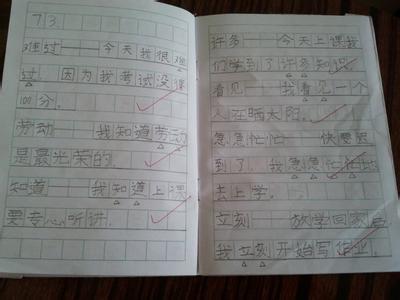 73.
难过——今天我很难
过，因为我考试没课
100分。
劳动——我知道劳动
是最光荣的。
知道——我知道上课
要专心听讲。
许多——今天上课我
们学到了许多知识。
看见——我看见一个
人在晒太阳。
急急忙忙——快要迟
到了，我急急忙忙地
去上学。
立刻——放学回家后
我立刻开始写作业。